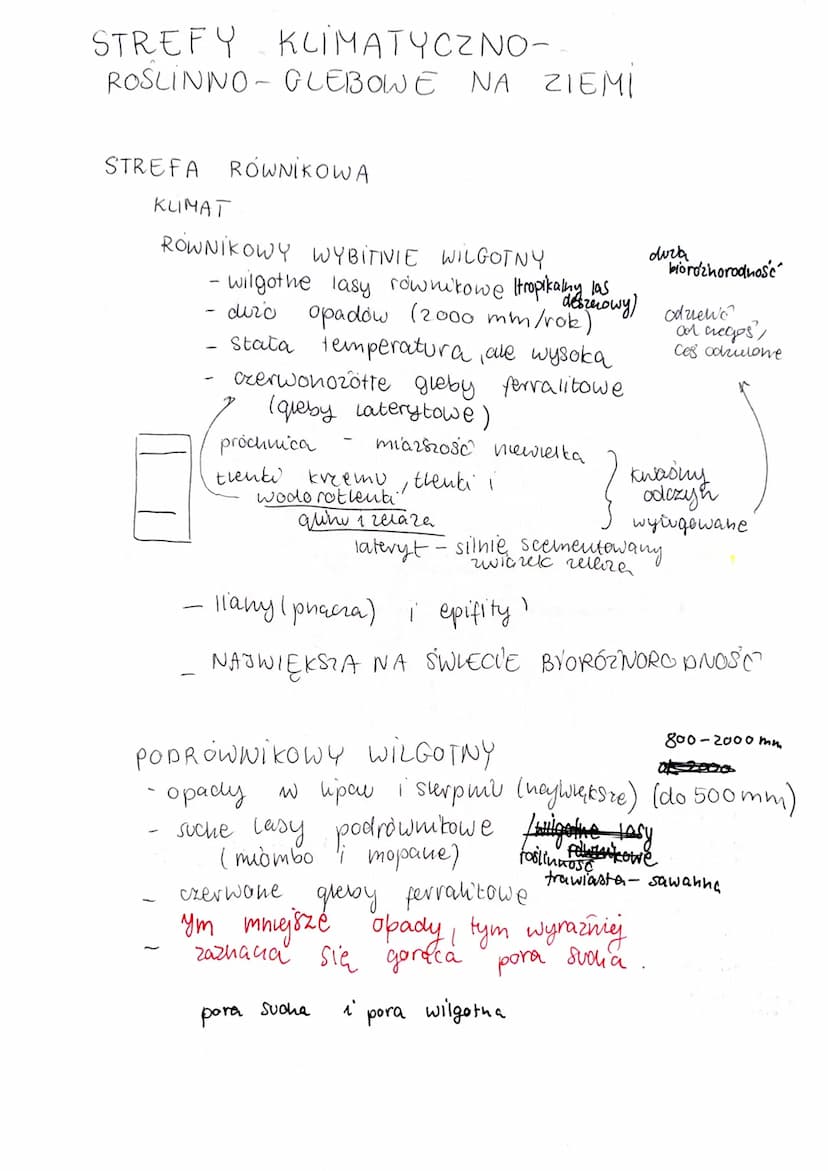 STREFY KLIMATYCZNO-
ROŚLINNO-GLEBOWE NA ZIEMI
STREFA RÓWNIKOWA
KLIMAT
RÓWNIKOWY WYBITNIE WILGOTNY
duża
bioróżnorodność
- wilgotne lasy równikowe (tropikalny las
deszczowy)
- dużo opadów (2000 mm/rok)
- stała temperatura, ale wysoka
- czerwonożółte gleby ferralitowe
(gleby laterytowe)
od czegoś,
coś
próchnica - miąższość niewielka
tlenki krzemu, tlenki i
wodorotlenki
glinu i żelaza
kwaśny
odczyn
wyługowane
lateryt - silnie scementowany
związek żelaza
- liany (pnącza) i epifity
- NAJWIĘKSZA NA ŚWIECIE BYORÓŻNORODNOŚĆ
PODRÓWNIKOWY WILGOTNY
800-2000 mm
- opady w lipcu i sierpniu (największe) (do 500 mm)
- suche lasy podrównikowe
(miombo i mopane)
wilgotne lasy
równikowe
roślinność
trawiasta - sawanna
- czerwone gleby ferralitowe
- Ym mniejsze opady, tym wyraźniej
zaznacza się gorąca pora sucha.
pora sucha i pora wilgotna